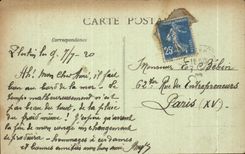 CARTE POSTALE
Correspondance
le 9/7/20
25
Monsieur E. Bébin
Ah! Mon cher Ami, il fait
bon au bord de la mer. Le
62 bis Rue des Entrepreneurs
temps malheureusement n'est
pas beau du tout, de la pluie
Paris (XV)
du froid même! J'espère qu'avant
la fin de mon congé un changement
se produira. Hommages à ces dames
et bonnes amitiés